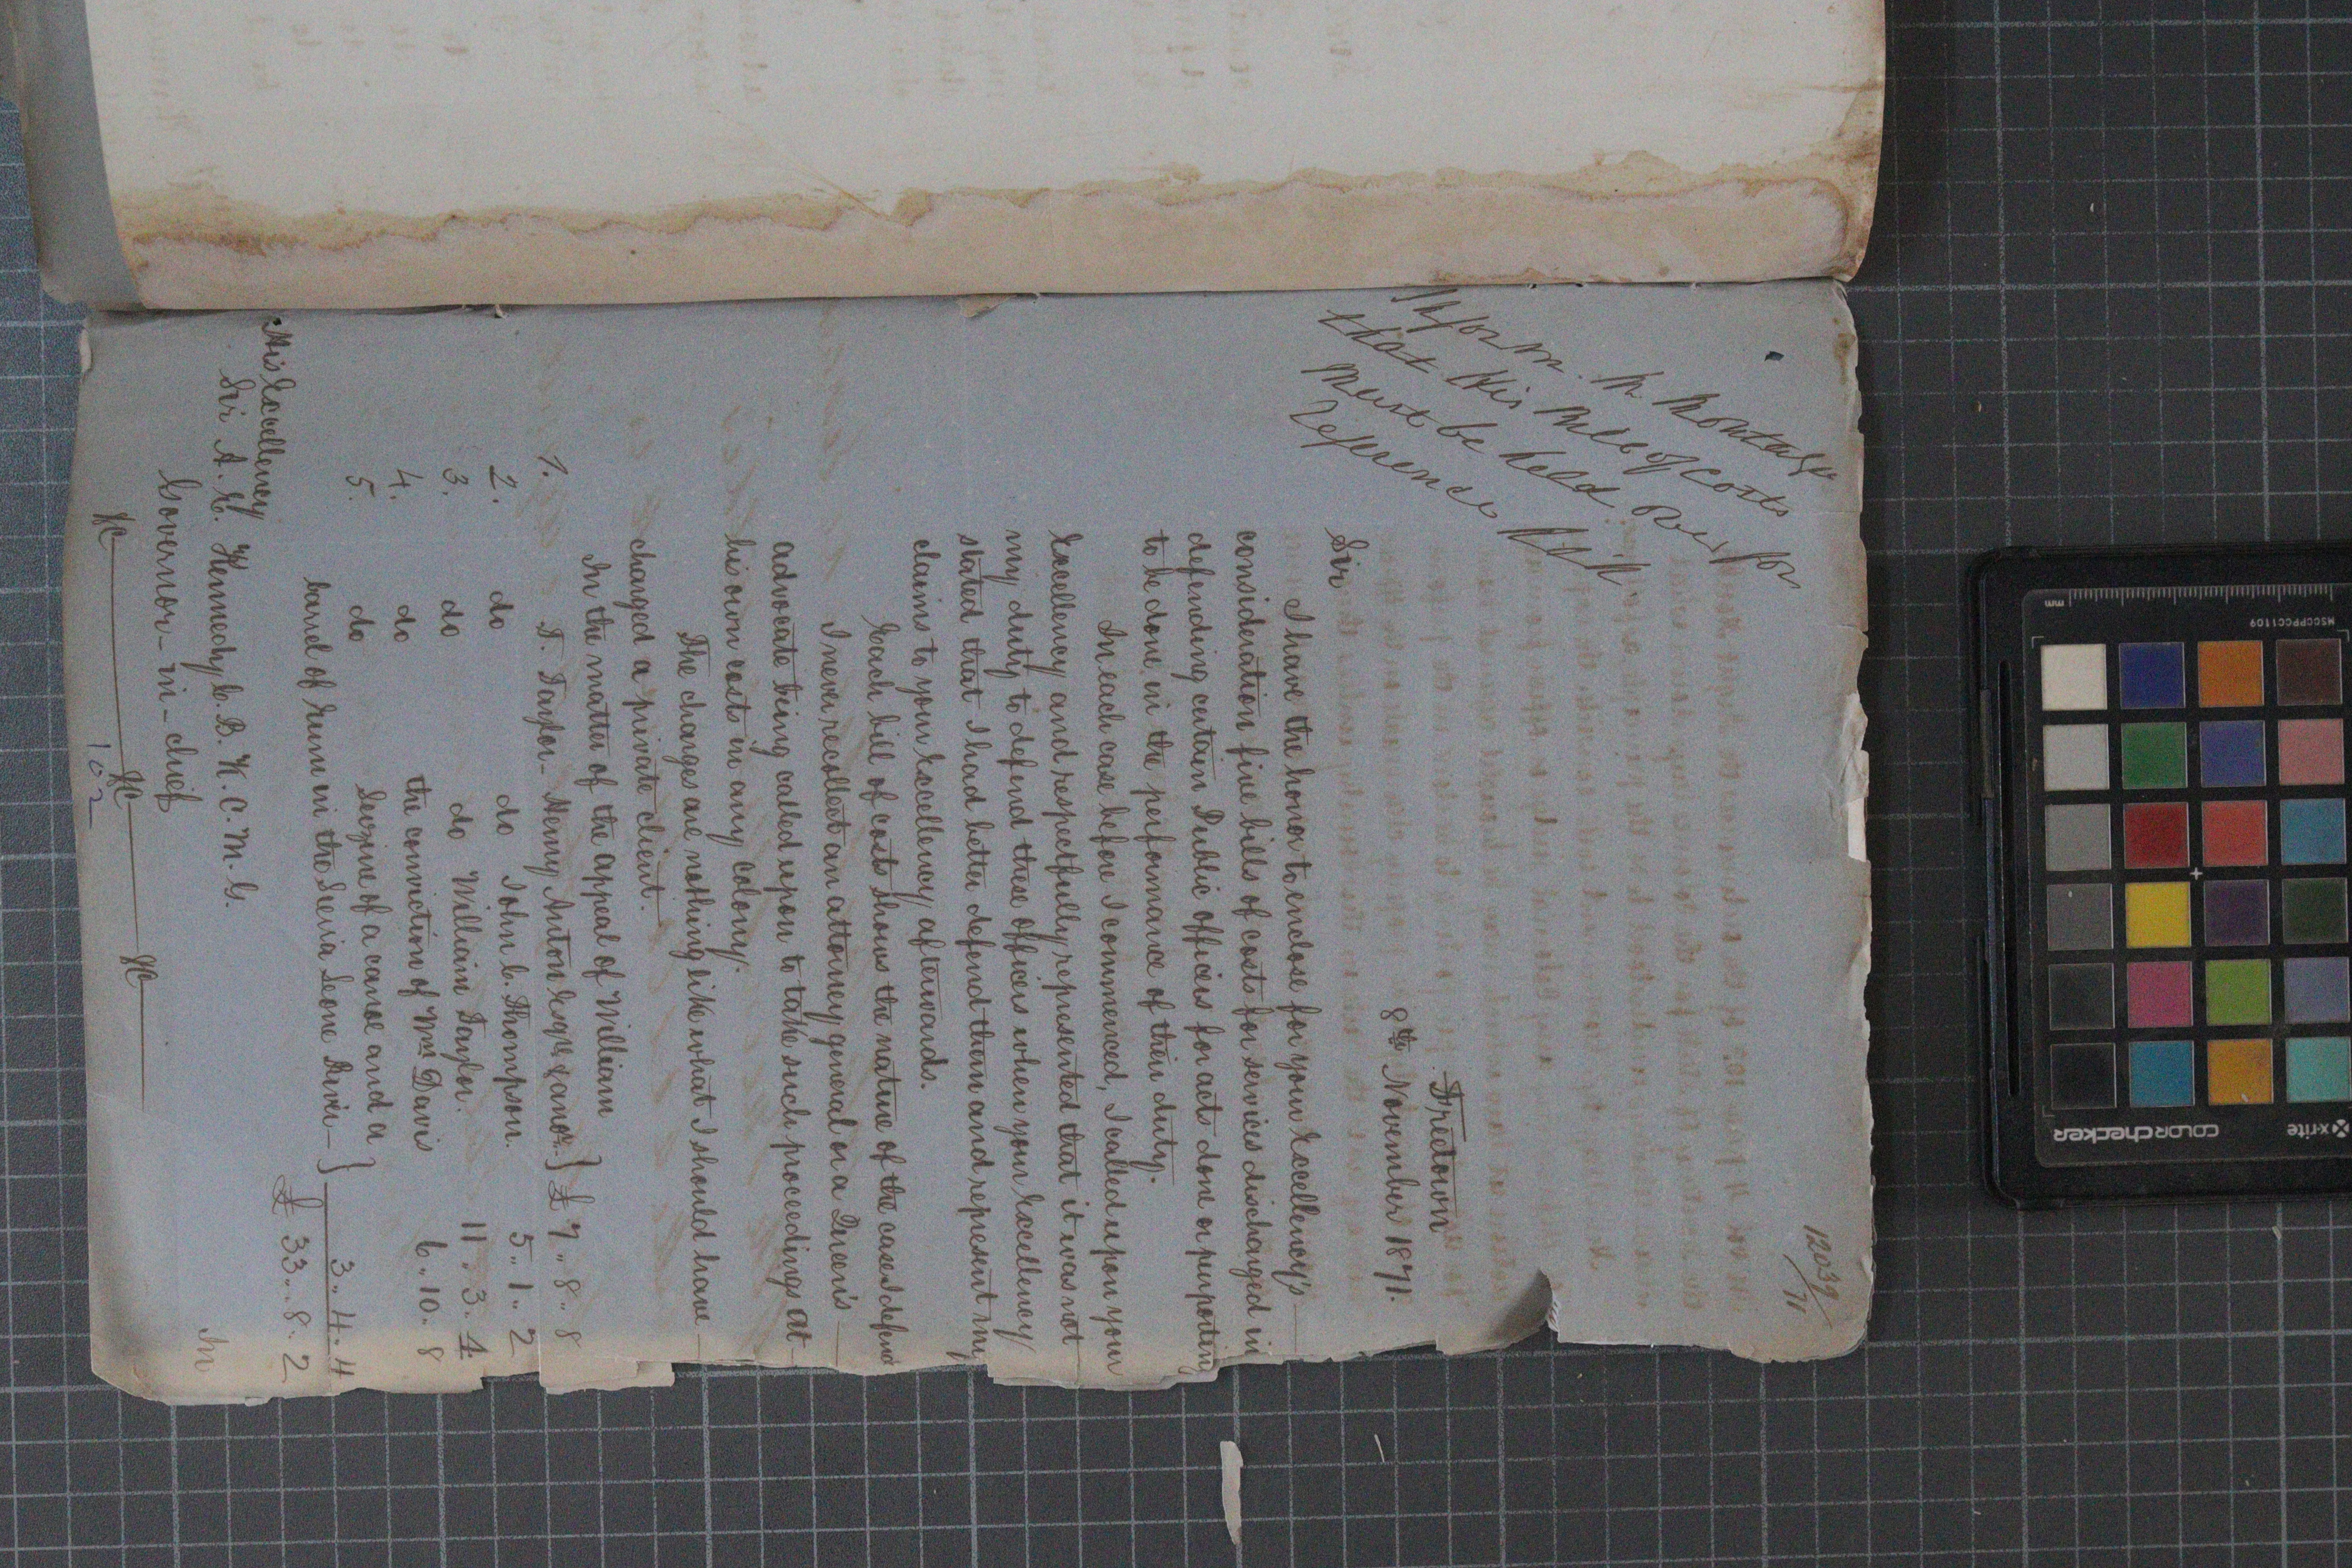 1203g/71
Inform. Mr. Montagu
that His Bill of Costs
must be held over for
reference
Freetown
8th November 1871.
Sir
I have the honor to enclose for your Excellency's
consideration five bills of costs for services discharged in
defending certain Public officers for acts done or purporting
to be done, in the performance of their duty.
In each case before I commenced, I called upon your
Excellency and respectfully represented that it was not
my duty to defend these officers when your Excellency
stated that I had better defend them and represent my
claims to your Excellency afterwards.
Each bill of costs shows the nature of the case I defend
I never recollect an attorney general or a Queen's
advocate being called upon to take such proceedings at
his own costs in any colony.
The charges are nothing like what I should have
charged a private client.
In the matter of the appeal of William
1. T. Taylor - Henry Anton Esqre & anor. } £ 7 .. 8 .. 8
2. do do John C. Thompson. 5 .. 1 .. 2
3. do do William Taylor. 11 .. 3 . 4
4. do the conviction of Wm Davis 6 .. 10 . 8
5. do Seizure of a canoe and a
barrel of rum in the Sierra Leone River - } 3 .. 4 .. 4
£ 33 .. 8 . 2
His Excellency
Sir A. E. Kennedy C. B. K. C. M. G.
Governor - in - chief
&c &c &c
In
102
mm
MSCCPPCC1109
x-rite
colorchecker